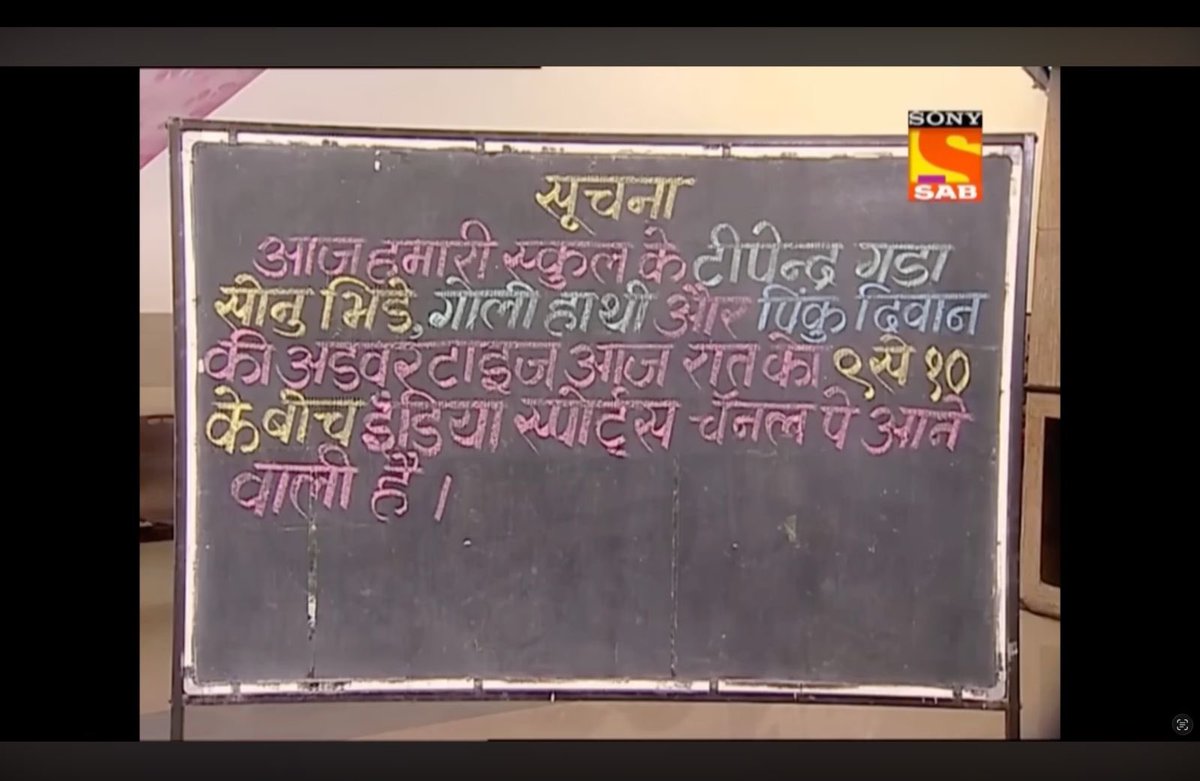 SONY
SAB
सूचना
आज हमारी स्कुल के टीपेन्द्र गडा
सोनु भिडे, गोली हाथी और पिंकु दिवान
की अडवरटाइज आज रात को ९ से १०
के बीच इंडिया स्पोर्ट्स चॅनल पे आने
वाली है ।